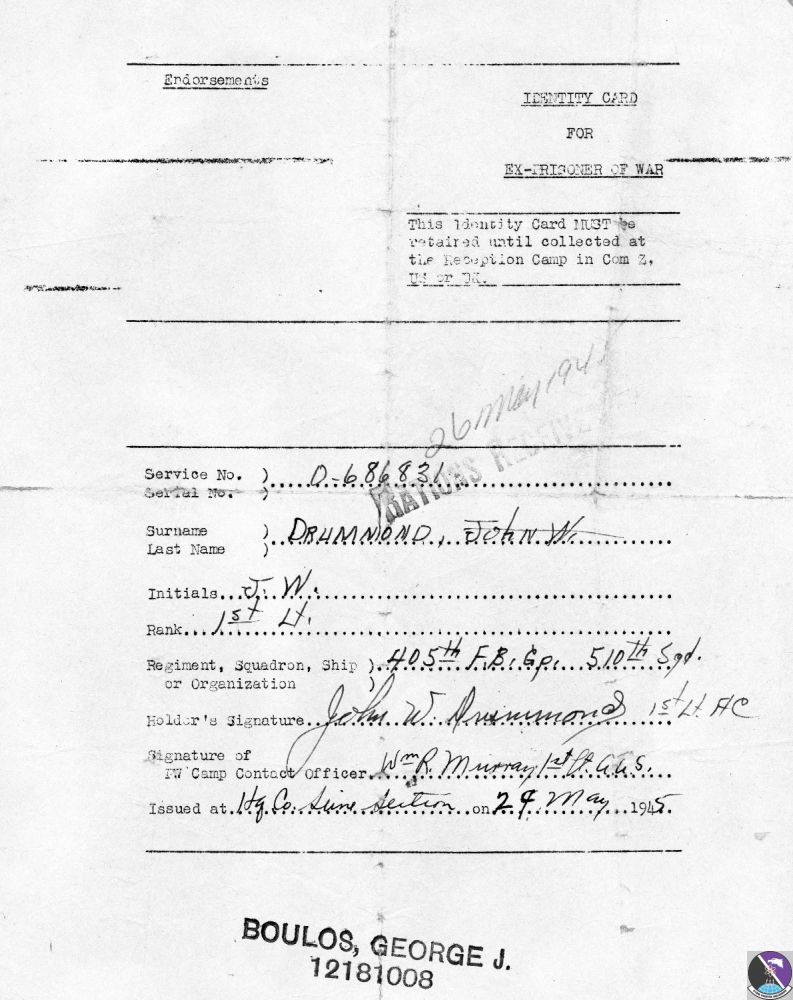 Endorsements
IDENTITY CARD
FOR
EX-PRISONER OF WAR
This Identity Card MUST be
retained until collected at
the Reception Camp in Com Z,
US or UK.
26 May 194
RATIONS RECEIVE
Service No. ) D-686831
Serial No. )
Surname ) DRUMMOND, John W.
Last Name )
Initials...J. W.
Rank... 1st Lt.
Regiment, Squadron, Ship ). 405th F.B. Gp. 510th Sqd.
or Organization )
Holder's Signature.. John W. Drummond 1st Lt AC
Signature of
PW Camp Contact Officer. Wm R. Murray 1st Lt. A.U.S.
Issued at. Hq Co. Seine Section ..on 24 May ...1945.
BOULOS, GEORGE J.
12181008